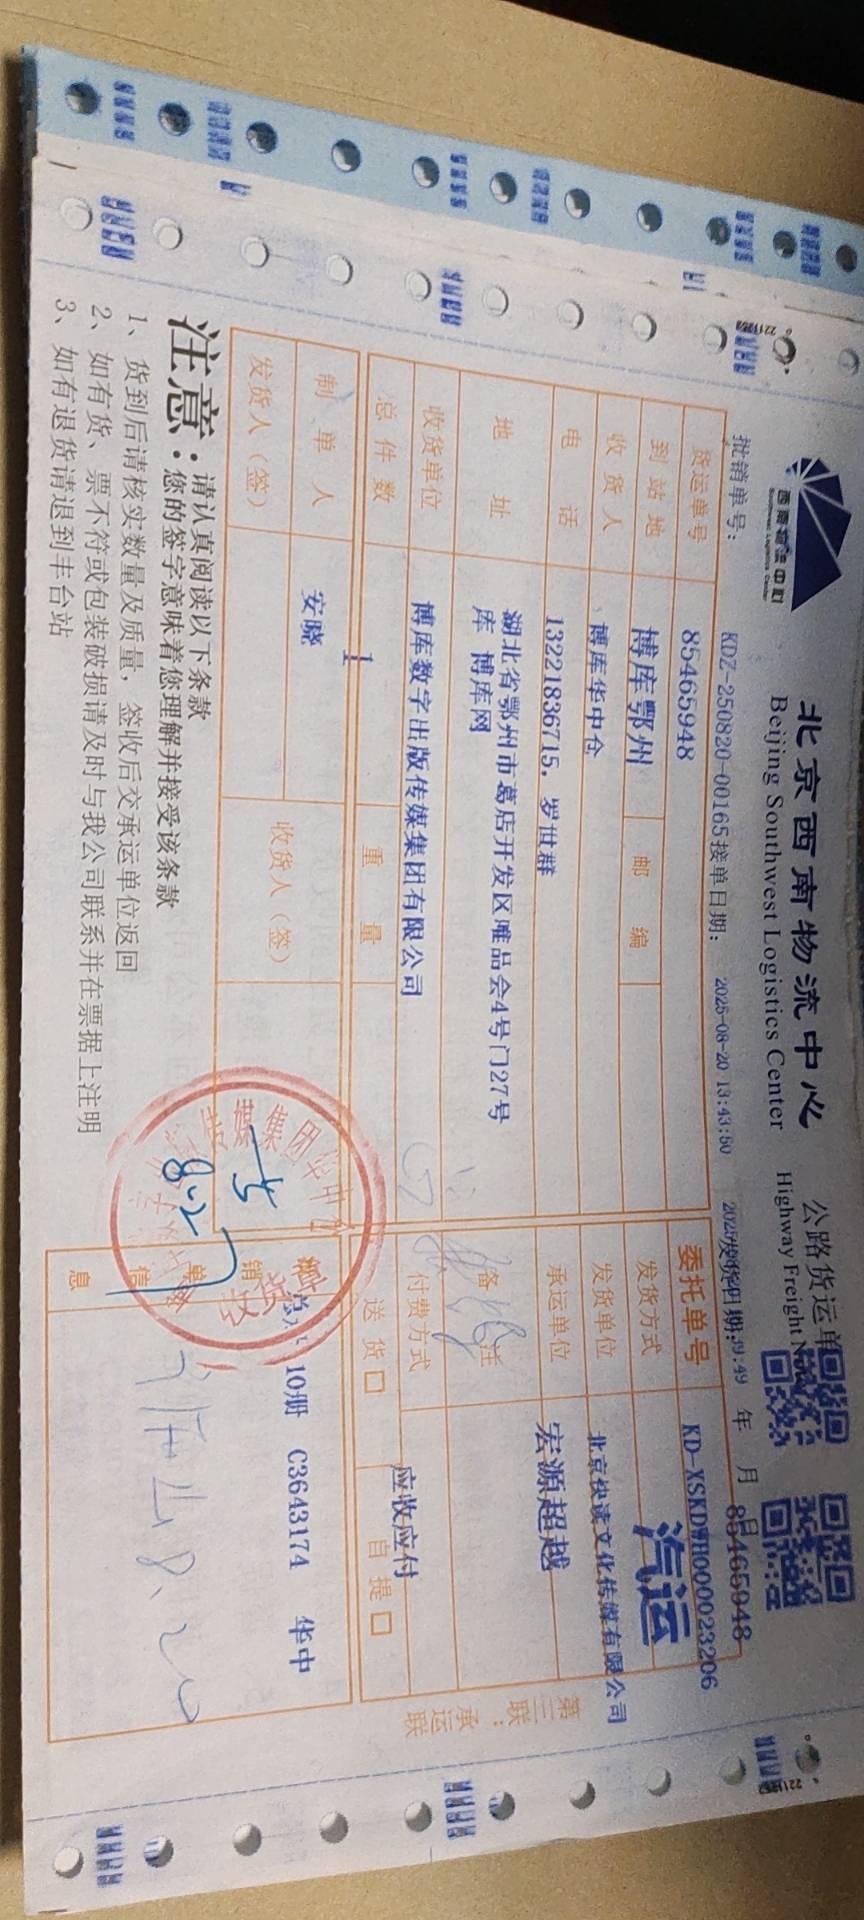 西南物流中心
Southwest Logistics Center
北京西南物流中心
Beijing Southwest Logistics Center
公路货运单
Highway Freight
批销单号：
KDZ-250820-00165
接单日期：
2025-08-20 13:43:50
年 月 日
85465948
货运单号
85465948
委托单号
KD-XSKDWH000023206
到站地
博库鄂州
邮编
发货方式
汽运
收货人
博库华中仓
发货单位
北京快读文化传媒有限公司
电话
13221836715，罗世群
承运单位
宏源超越
地址
湖北省鄂州市葛店开发区唯品会4号门27号
库 博库网
备注
收货单位
博库数字出版传媒集团有限公司
付费方式
应收应付
总件数
1
重量
送货□
自提□
制单人
安晓
收货人（签）
发货人（签）
销单信息
10册 C3643174 华中
传媒集团华中
收货章
8.20
第三联：承运联
注意：
请认真阅读以下条款
您的签字意味着您理解并接受该条款
1、货到后请核实数量及质量，签收后交承运单位返回
2、如有货、票不符或包装破损请及时与我公司联系并在票据上注明
3、如有退货请退到丰台站